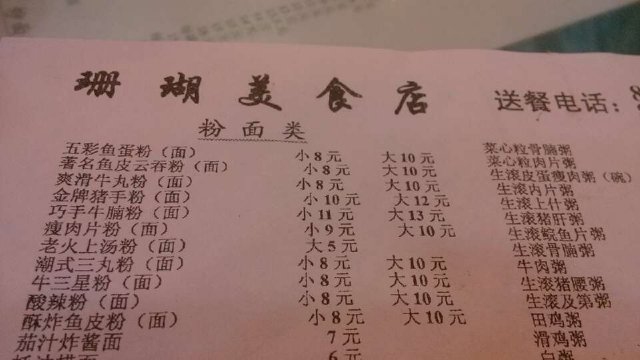 珊瑚美食店
送餐电话:
粉面类
五彩鱼蛋粉(面) 小8元 大10元
著名鱼皮云吞粉(面) 小8元 大10元
爽滑牛丸粉(面) 小8元 大10元
金牌猪手粉(面) 小10元 大12元
巧手牛腩粉(面) 小11元 大13元
瘦肉片粉(面) 小9元 大10元
老火上汤粉(面) 大5元
潮式三丸粉(面) 小8元 大10元
牛三星粉(面) 小8元 大10元
酸辣粉(面) 小8元 大10元
酥炸鱼皮粉(面) 小8元 大10元
茄汁炸酱面 7元
6元
菜心粒骨腩粥
菜心粒肉片粥
生滚皮蛋瘦肉粥(碗)
生滚内片粥
生滚上什粥
生滚猪肝粥
生滚鲩鱼片粥
生滚骨腩粥
牛肉粥
生滚猪腰粥
生滚及第粥
田鸡粥
滑鸡粥
白粥